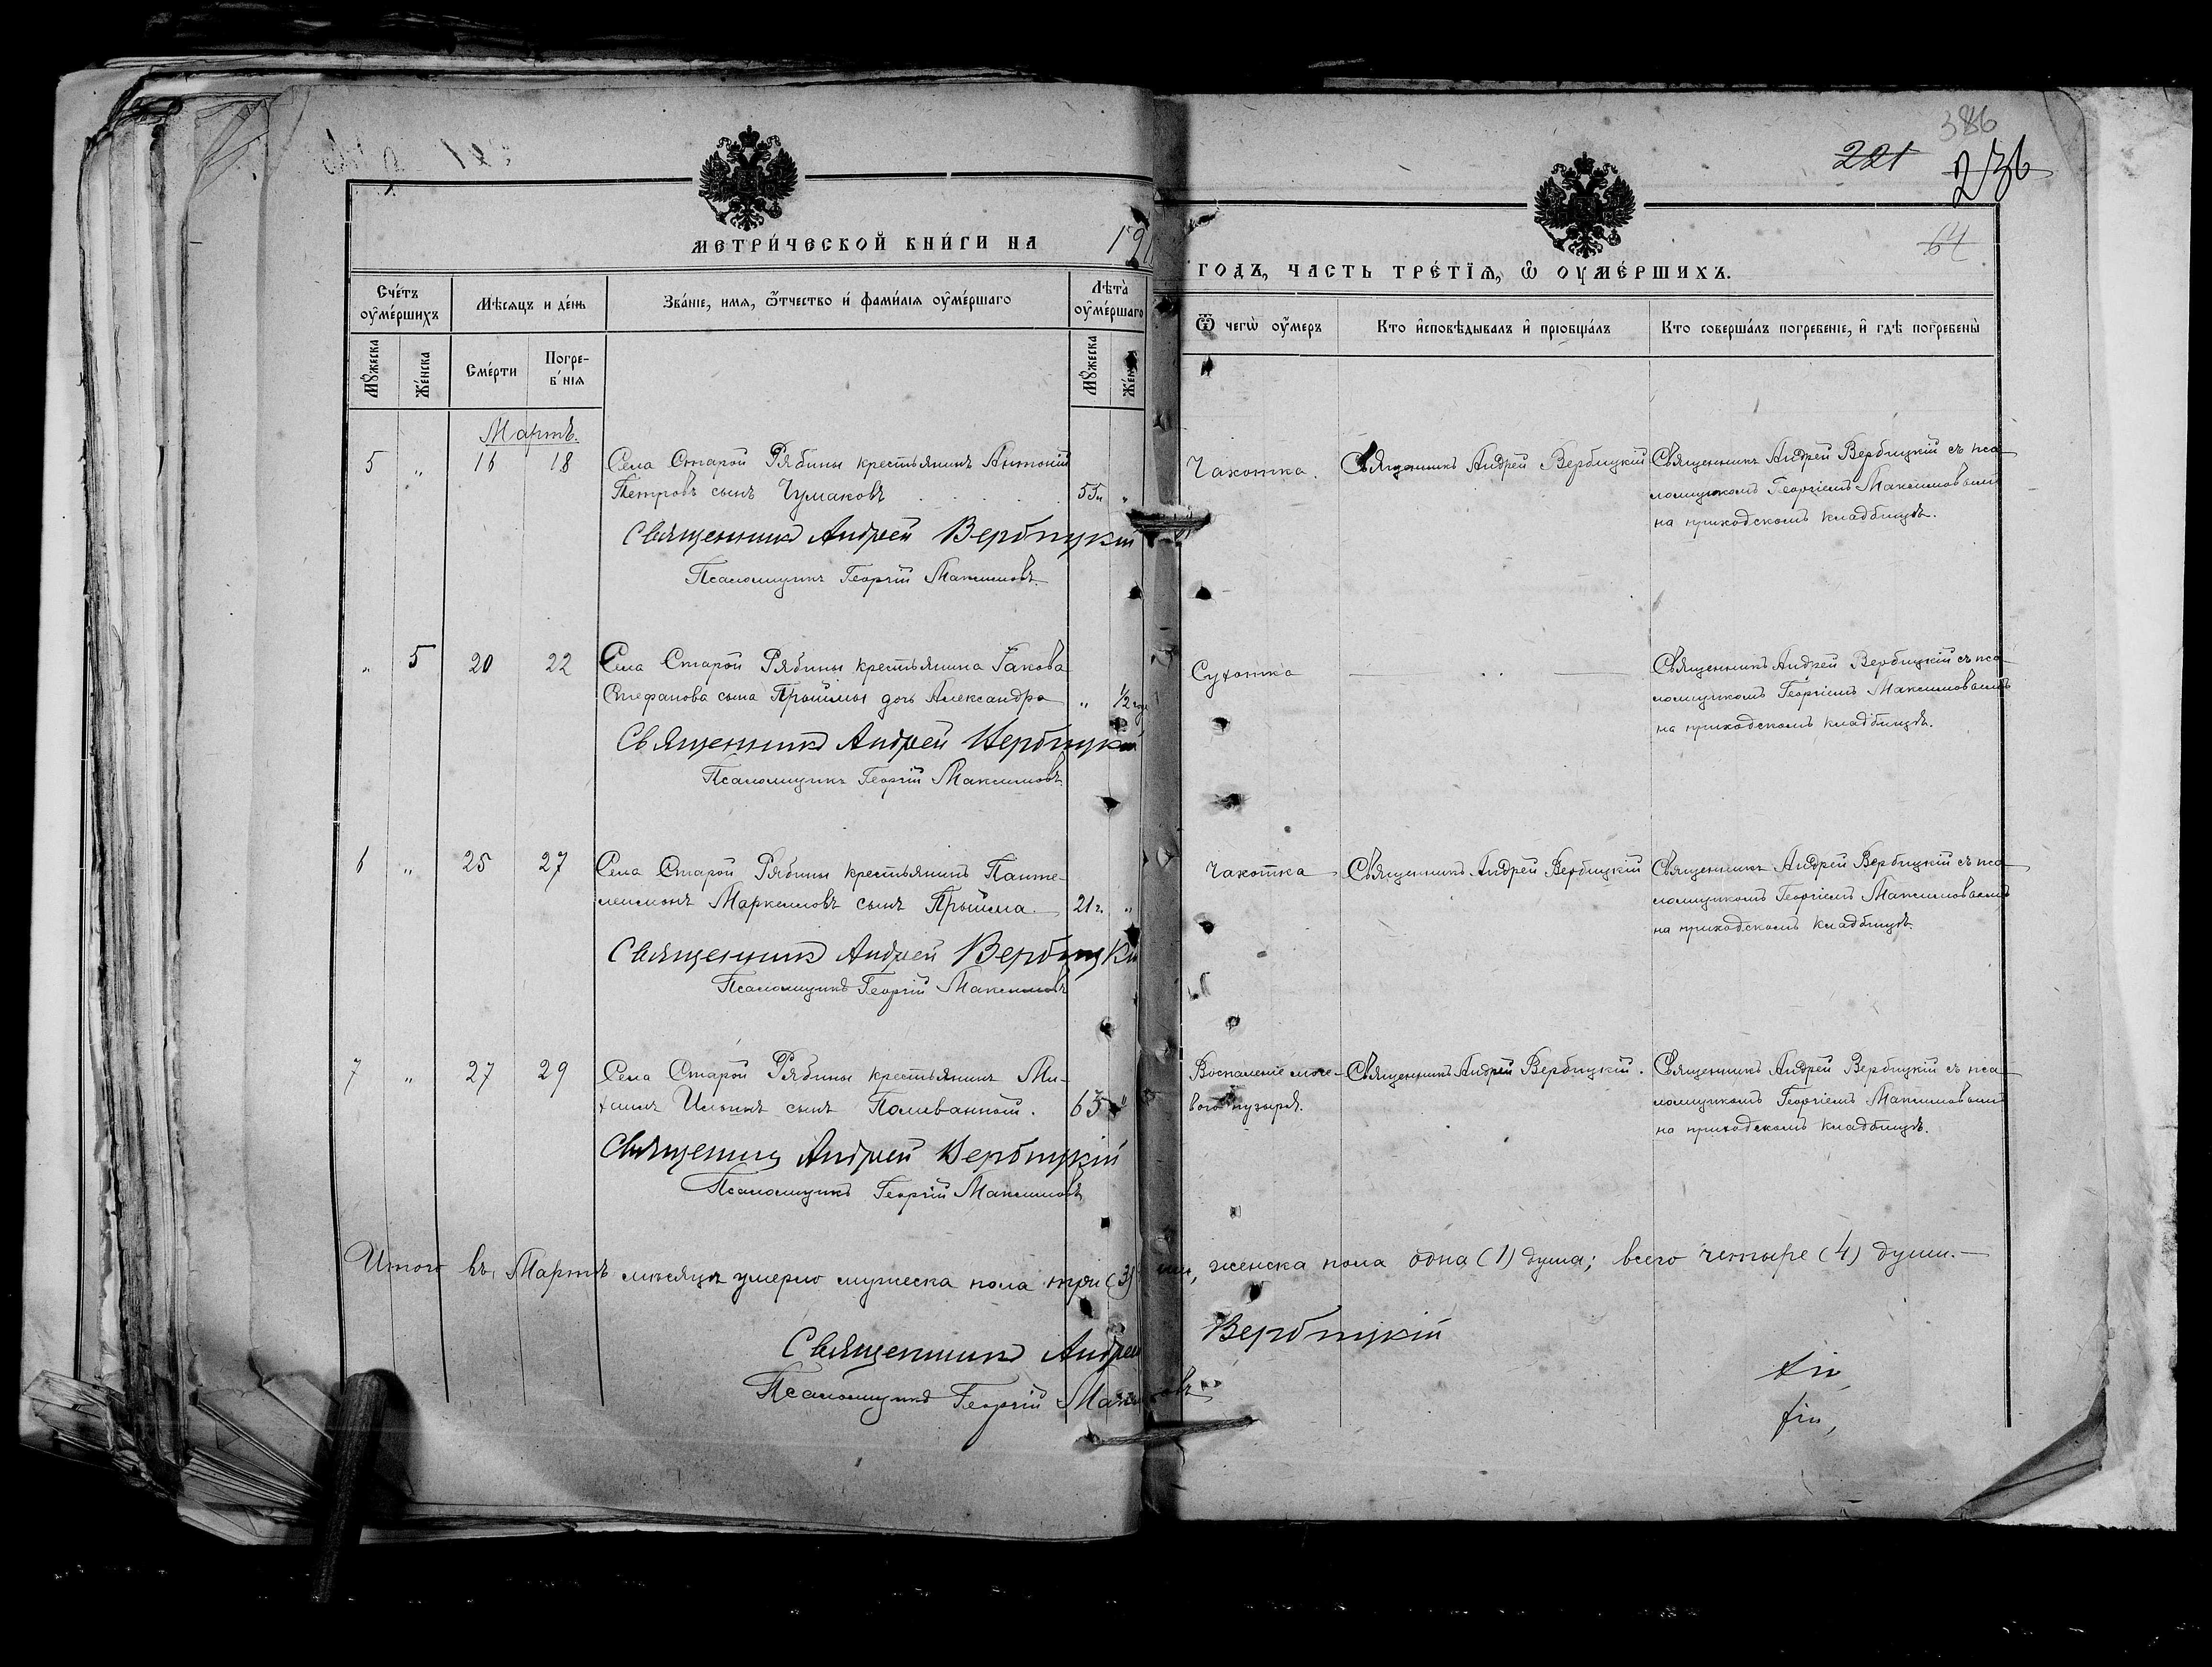 386
221 236
64
МЕТРИ́ЧЕСКОЙ КНИ́ГИ НА 191
ГОДЪ, ЧАСТЬ ТРЕ́ТІѦ, Ѡ ОУМЕ́РШИХЪ.
Сче́тъ оуме́ршихъ
Мѣсѧцъ и де́нь
Зва́ніе, имѧ, ѿтчество и фами́лїѧ оуме́ршаго
Лѣта̀ оуме́ршаго
Ѿ чегѡ̀ оу́меръ
Кто и҆сповѣ́дывалъ и҆ прїобща́лъ
Кто соверша́лъ погребе́нїе, и҆ гдѣ̀ погребены̀
Мꙋ́жеска
Же́нска
Сме́рти
Погребе́нїѧ
Мꙋ́жеска
Же́нска
Мартъ.
5 " 16 18 Села Старой Рябины крестьянинъ Антоній
Петровъ сынъ Чумаковъ 55 л "
Священникъ Андрей Вербицкій
Псаломщикъ Георгій Максимовъ
Чахотка.
Священникъ Андрей Вербицкій
Священникъ Андрей Вербицкій съ пса-
ломщикомъ Георгіемъ Максимовымъ
на приходскомъ кладбищѣ.
" 5 20 22 Села Старой Рябины крестьянина Іакова
Стефанова сына Прыймы дочь Александра " 1/2 года
Священникъ Андрей Вербицкій
Псаломщикъ Георгій Максимовъ
Сухотка
Священникъ Андрей Вербицкій съ пса-
ломщикомъ Георгіемъ Максимовымъ
на приходскомъ кладбищѣ.
6 " 25 27 Села Старой Рябины крестьянинъ Панте-
леимонъ Маркелловъ сынъ Прыйма 21 г. "
Священникъ Андрей Вербицкій
Псаломщикъ Георгій Максимовъ
Чахотка
Священникъ Андрей Вербицкій
Священникъ Андрей Вербицкій съ пса-
ломщикомъ Георгіемъ Максимовымъ
на приходскомъ кладбищѣ.
7 " 27 29 Села Старой Рябины крестьянинъ Ми-
хаилъ Ильинъ сынъ Поливанный. 65 "
Священникъ Андрей Вербицкій
Псаломщикъ Георгій Максимовъ
Воспаленіе моче-
вого пузыря.
Священникъ Андрей Вербицкій.
Священникъ Андрей Вербицкій съ пса-
ломщикомъ Георгіемъ Максимовымъ
на приходскомъ кладбищѣ.
Итого въ Мартѣ мѣсяцѣ умерло мужеска пола три (3) женска пола одна (1) душа; всего четыре (4) души.
Священникъ Андрей Вербицкій
Псаломщикъ Георгій Максимовъ